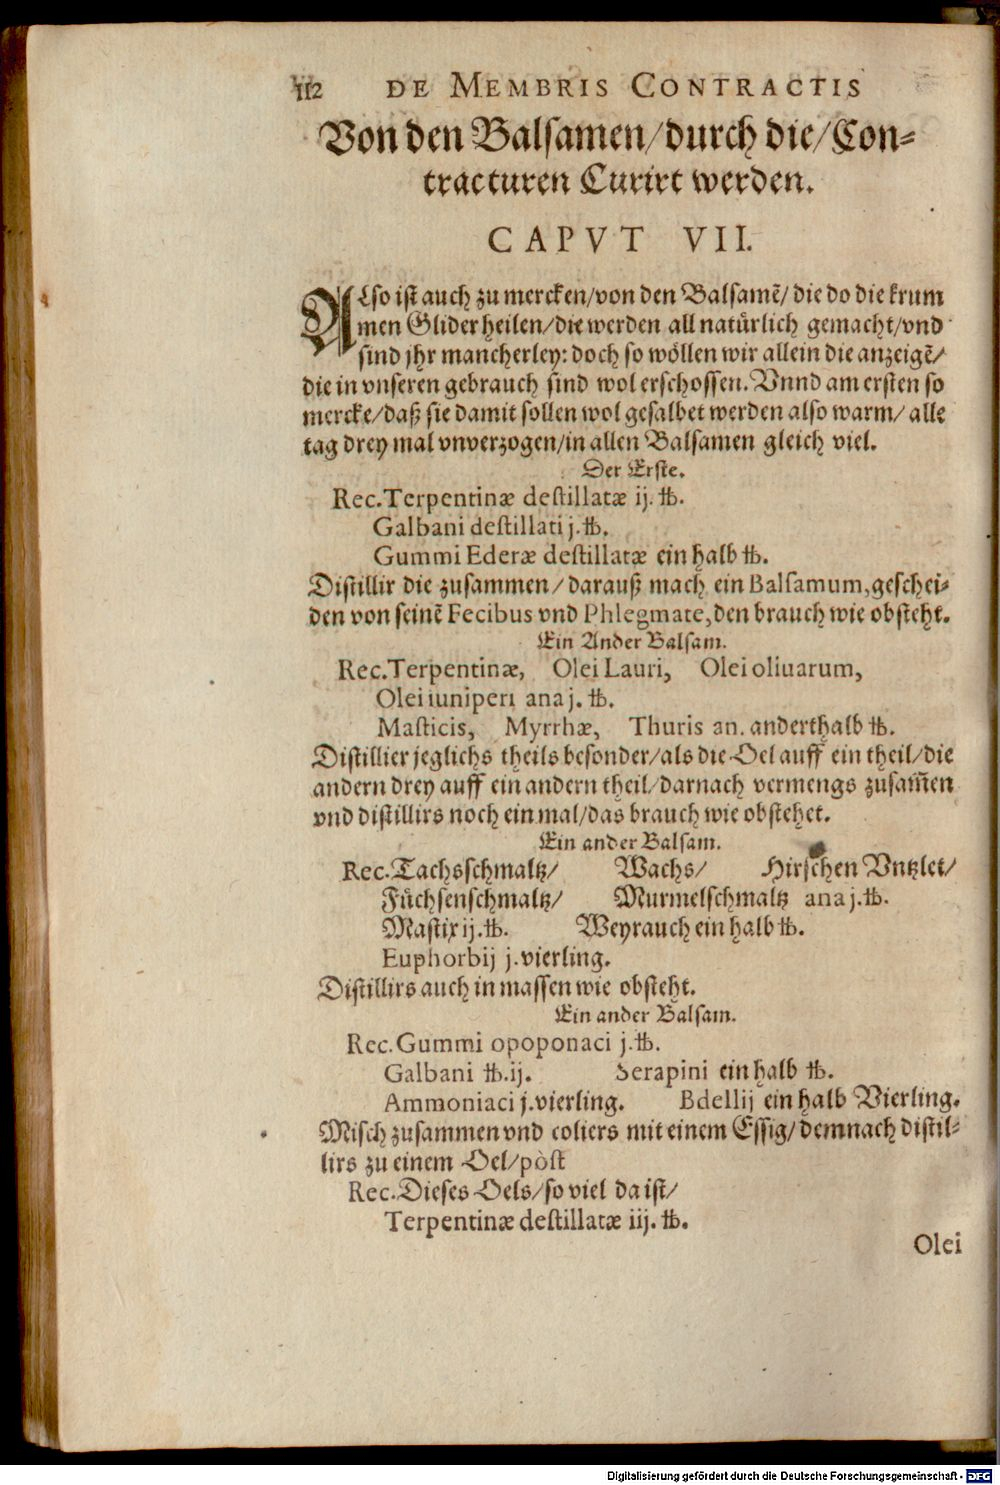 112 DE MEMBRIS CONTRACTIS
Von den Balsamen/durch die/Con-
tracturen Curirt werden.
CAPVT VII.
ALso ist auch zu mercken/von den Balsamẽ/die do die krum
men Glider heilen/die werden all natürlich gemacht/vnd
sind jhr mancherley: doch so wöllen wir allein die anzeigẽ/
die in vnseren gebrauch sind wol erschossen. Vnnd am ersten so
mercke/daß sie damit sollen wol gesalbet werden also warm/ alle
tag drey mal vnverzogen/in allen Balsamen gleich viel.
Der Erste.
Rec. Terpentinæ destillatæ ij. ℔.
Galbani destillati j. ℔.
Gummi Ederæ destillatæ ein halb ℔.
Distillir die zusammen/ darauß mach ein Balsamum, geschei-
den von seinẽ Fecibus vnd Phlegmate, den brauch wie obsteht.
Ein Ander Balsam.
Rec. Terpentinæ, Olei Lauri, Olei oliuarum,
Olei iuniperi ana j. ℔.
Masticis, Myrrhæ, Thuris an. anderthalb ℔.
Distillier jeglichs theils besonder/als die Oel auff ein theil/die
andern drey auff ein andern theil/darnach vermengs zusam̃en
vnd distillirs noch ein mal/das brauch wie obstehet.
Ein ander Balsam.
Rec. Tachsschmaltz/ Wachs/ Hirschen Vntzlet/
Füchsenschmaltz/ Murmelschmaltz ana j. ℔.
Mastix ij. ℔. Weyrauch ein halb ℔.
Euphorbij j. vierling.
Distillirs auch in massen wie obsteht.
Ein ander Balsam.
Rec. Gummi opoponaci j. ℔.
Galbani ℔. ij. Serapini ein halb ℔.
Ammoniaci j. vierling. Bdellij ein halb Vierling.
Misch zusammen vnd coliers mit einem Essig/ demnach distil-
lirs zu einem Oel/pòst
Rec. Dieses Oels/so viel da ist/
Terpentinæ destillatæ iij. ℔.
Olei
Digitalisierung gefördert durch die Deutsche Forschungsgemeinschaft - DFG